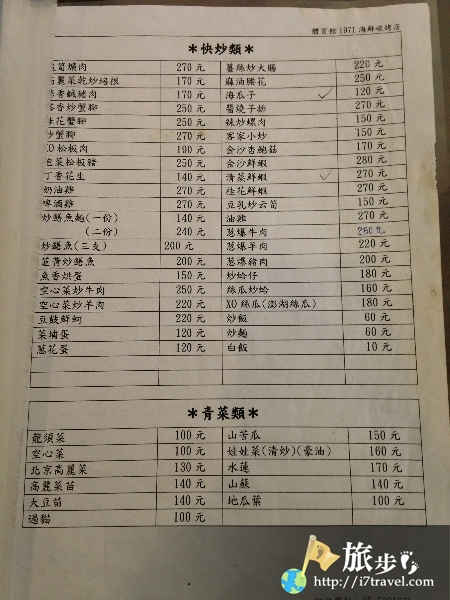 體育館1971海鮮碳烤店
＊快炒類＊
筍爌肉 270元 薑絲炒大腸 220元
高麗菜乾炒培根 170元 麻油腰花 250元
香鹹豬肉 170元 海瓜子 120元
香炒蟹腳 250元 醬燒子排 270元
桂花蟹腳 250元 辣炒螺肉 150元
炒蟹腳 270元 客家小炒 150元
XO松板肉 190元 金沙杏鮑菇 170元
泡菜松板豬 250元 金沙鮮蝦 280元
丁香花生 140元 清蒸鮮蝦 270元
奶油雞 270元 桂花鮮蝦 270元
啤酒雞 270元 豆乳炒云筍 150元
炒鱔魚麵(一份) 140元 油雞 270元
(二份) 240元 蔥爆牛肉 260元
炒鱔魚(三支) 200元 蔥爆羊肉 220元
韮菁炒鱔魚 200元 蔥爆豬肉 200元
魚香烘蛋 150元 炒蛤仔 180元
空心菜炒牛肉 250元 絲瓜炒蛤 160元
空心菜炒羊肉 220元 XO絲瓜(澎湖絲瓜) 180元
豆鼓鮮蚵 220元 炒飯 60元
菜埔蛋 120元 炒麵 60元
蔥花蛋 120元 白飯 10元
＊青菜類＊
龍須菜 100元 山苦瓜 150元
空心菜 100元 娃娃菜(清炒)(豪油) 160元
北京高麗菜 130元 水蓮 170元
高麗菜苗 140元 山蘇 140元
大豆苗 140元 地瓜葉 100元
過貓 100元
旅步
http://i7travel.com/